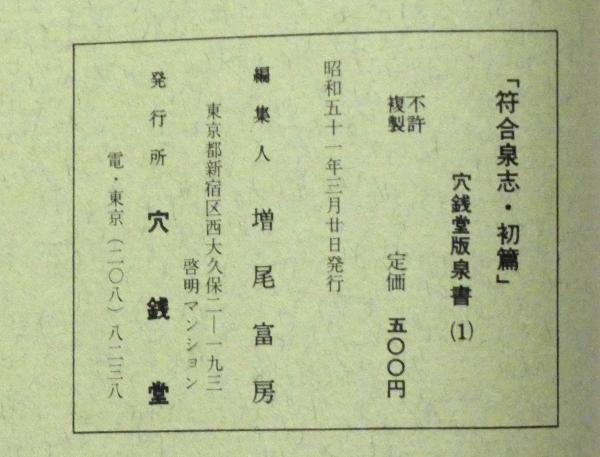 「符合泉志・初篇」
穴銭堂版泉書(1)
不許複製 定価 五〇〇円
昭和五十一年三月廿日発行
編集人 増尾富房
東京都新宿区西大久保二―一九三
啓明マンション
発行所 穴銭堂
電・東京(二〇八)八二三八